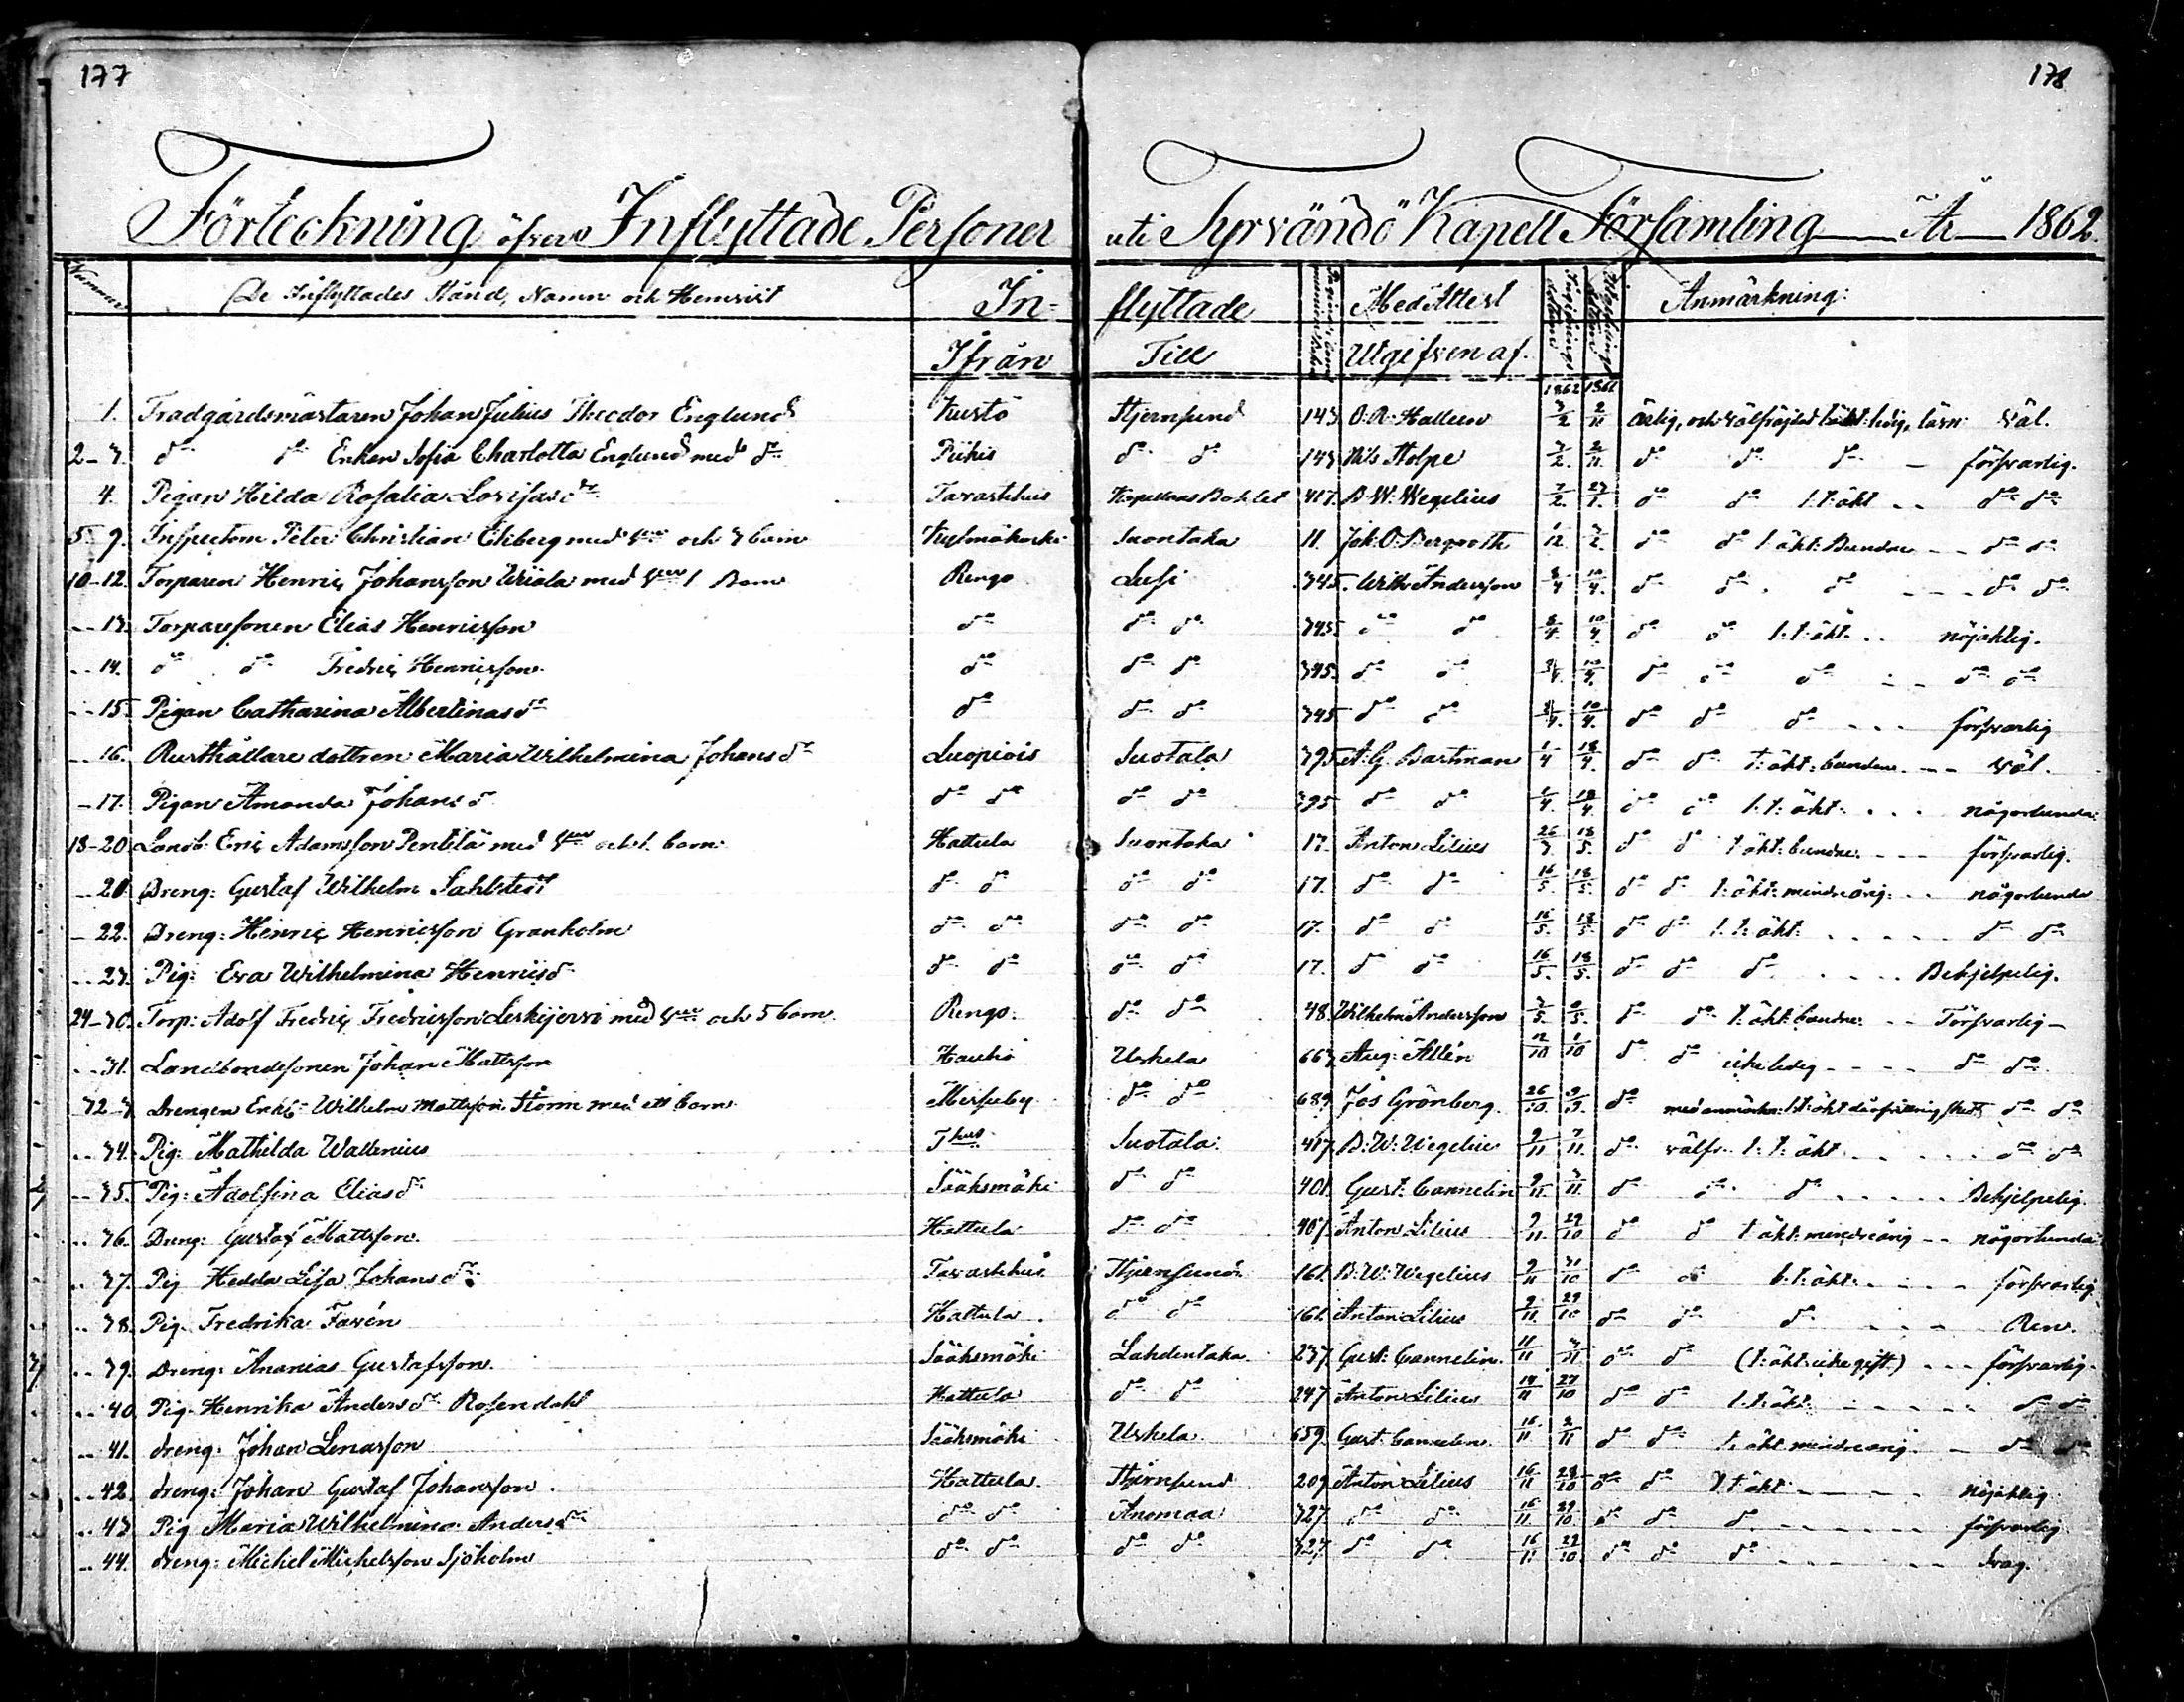 177
178
Förteckning öfver Inflyttade Personer uti Tyrvändö Kapell Församling År 1862.
Nummer De Inflyttades Stånd, Namn och Hemvist In- flyttade Med Attest Anmärkning:
Ifrån Till Utgifven af.
1862 1861
1. Trädgårdsmästaren Johan Julius Theodor Englund Kustö Hjernsund 143 O. R. Hallen 3/2 2/11 ärlig, och välfräjdad väl.
2-3. do do Enkan Sofia Charlotta Englund med do Piikis do do 143 Nils Stolpe 3/2. 2/11. do do do försvarlig.
4. Pigan Hilda Rosalia Lovisasdr Tavastehus Kapellans Bohlet 417. B. W. Wegelius 3/2. 27/1. do do l. t. äkt do do
5-9. Inspectorn Peter Christian Ekberg med hu och 3 barn Kylmäkoski Suontaka 11. Joh. O. Bergroth 12 3/2. do do t. äkt. Bunden do do
10-12. Torparen Henric Johansson Uriala med hu 1 Barn Rengo Lusi 345. Wilh. Andersson 8/4 10/4. do do do do do
13. Torparesonen Elias Henricsson do do do 345 do do 8/4. 10/4 do do l. t. äkt. nöjaktig.
14. do do Fredric Henricsson do do do 345. do do 8/4. 10/4. do do do do do
15. Pigan Catharina Albertinasdr do do do 345 do do 8/4. 10/4. do do do försvarlig
16. Rusthållare dottren Maria Wilhelmina Johansdr Luopiois Suotala 395 A. G. Bartman 1/4 18/4. do do t. äkt. bunden väl.
17. Pigan Amanda Johansdr do do do do 395 do do 1/4. 18/4. do do l. t. äkt. någorlunda
18-20. Landb: Eric Adamsson Pentilä med hu och 1. barn Hattula Suontaka 17. Anton Lilius 26/3. 18/5. do do t. äkt. bunden. försvarlig.
21. Dreng: Gustaf Wilhelm Sahlstedt do do do do 17. do do 16/5. 18/5. do do t. äkt. mindreårig. någorlunda
22. Dreng: Henric Henricsson Granholm do do do do 17. do do 16/5. 18/5. do do l. t. äkt. do do
23. Pig: Eva Wilhelmina Henricsdr do do do do 17. do do 16/5. 18/5. do do do Behjelpelig.
24-30. Torp: Adolf Fredric Fredricsson Leskijervi med hu och 5 barn. Rengo. do do 48. Wilhelm Andersson do do t. äkt. bunden Försvarlig
31. Landbondesonen Johan Mattsson Hauho Uskela 663. Aug: Allén 12/10 1/10 do do icke ledig do do
32-3. Drengen Enkl: Wilhelm Mattsson Storm med ett barn Messuby do do 689 Jos Grönberg. 26/10. 9/9. do do do
34. Pig: Mathilda Wallenius Thus Suotala. 417. B. W. Wegelius 9/11 7/11. do välfr. l. t. äkt do do
35. Pig: Adolfina Eliasdr Sääksmäki do do 401. Gust: Cannelin 9/11 3/11. do do do Behjelpelig
36. Dreng: Gustaf Mattsson. Hattula do do 407. Anton Lilius 9/11. 29/10 do do t. äkt. mindreårig någorlunda
37. Pig Hedda Lisa Johansdr Tavastehus Hjernsund. 161. B. W. Wegelius 9/11 31/10 do do l. t. äkt. försvarlig.
38. Pig. Fredrika Favén Hattula. do do 161. Anton Lilius 9/11. 29/10 do do do Ren.
39. Dreng: Ananias Gustafsson. Sääksmäki Lahdentaka. 237. Gust: Cannelin. 11/11 3/11 do do (t. äkt. icke gift.) försvarlig.
40. Pig. Henrika Andersdr Rosendahl Hattula do do 247. Anton Lilius 14/11 27/10 do do l. t. äkt. do do
41. dreng: Johan Lenasson Sääksmäki Uskela. 659. Gust: Cannelin. 16/11 2/11 do do t. äkt mindreårig. do do
42. dreng: Johan Gustaf Johansson. Hattula. Hjernsund 209. Anton Lilius 16/11 28/10 do do l. t. äkt nöjaktig
43. Pig Maria Wilhelmina Andersdr do do Anomaa 327. do do 16/11. 29/10. do do do försvarlig
44. dreng: Michel Michelsson Sjöholm do do do do 327. do do 16/11 29/10. do do do Svag.